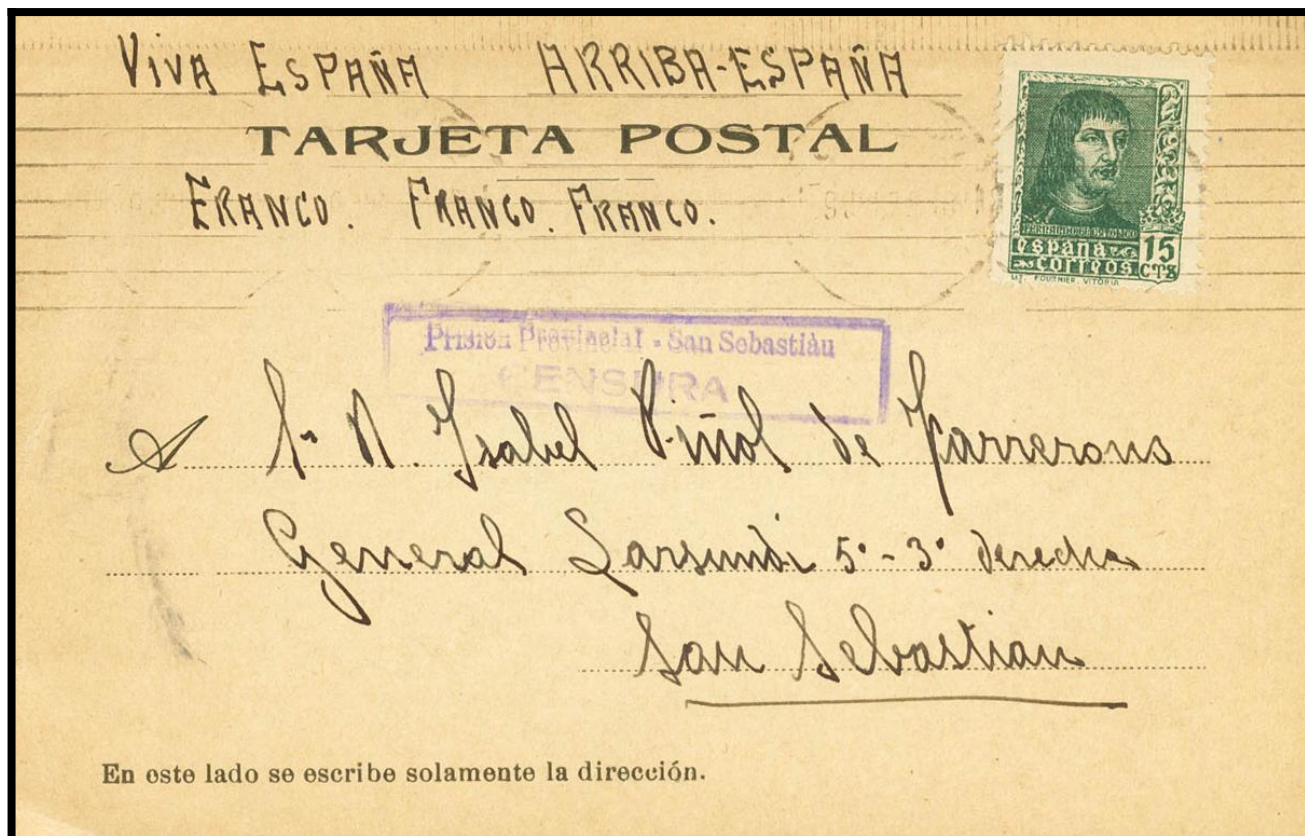 VIVA ESPAÑA ARRIBA-ESPAÑA
TARJETA POSTAL
FRANCO. FRANCO. FRANCO.
FERNANDO EL CATOLICO
españa
correos
15
CTS
LIT. FOURNIER. VITORIA
Prisión Provincial - San Sebastián
CENSURA
A Sra D. Isabel Piñol de Farrerons
General Larsundi 5º - 3º derecha
San Sebastian
En este lado se escribe solamente la dirección.